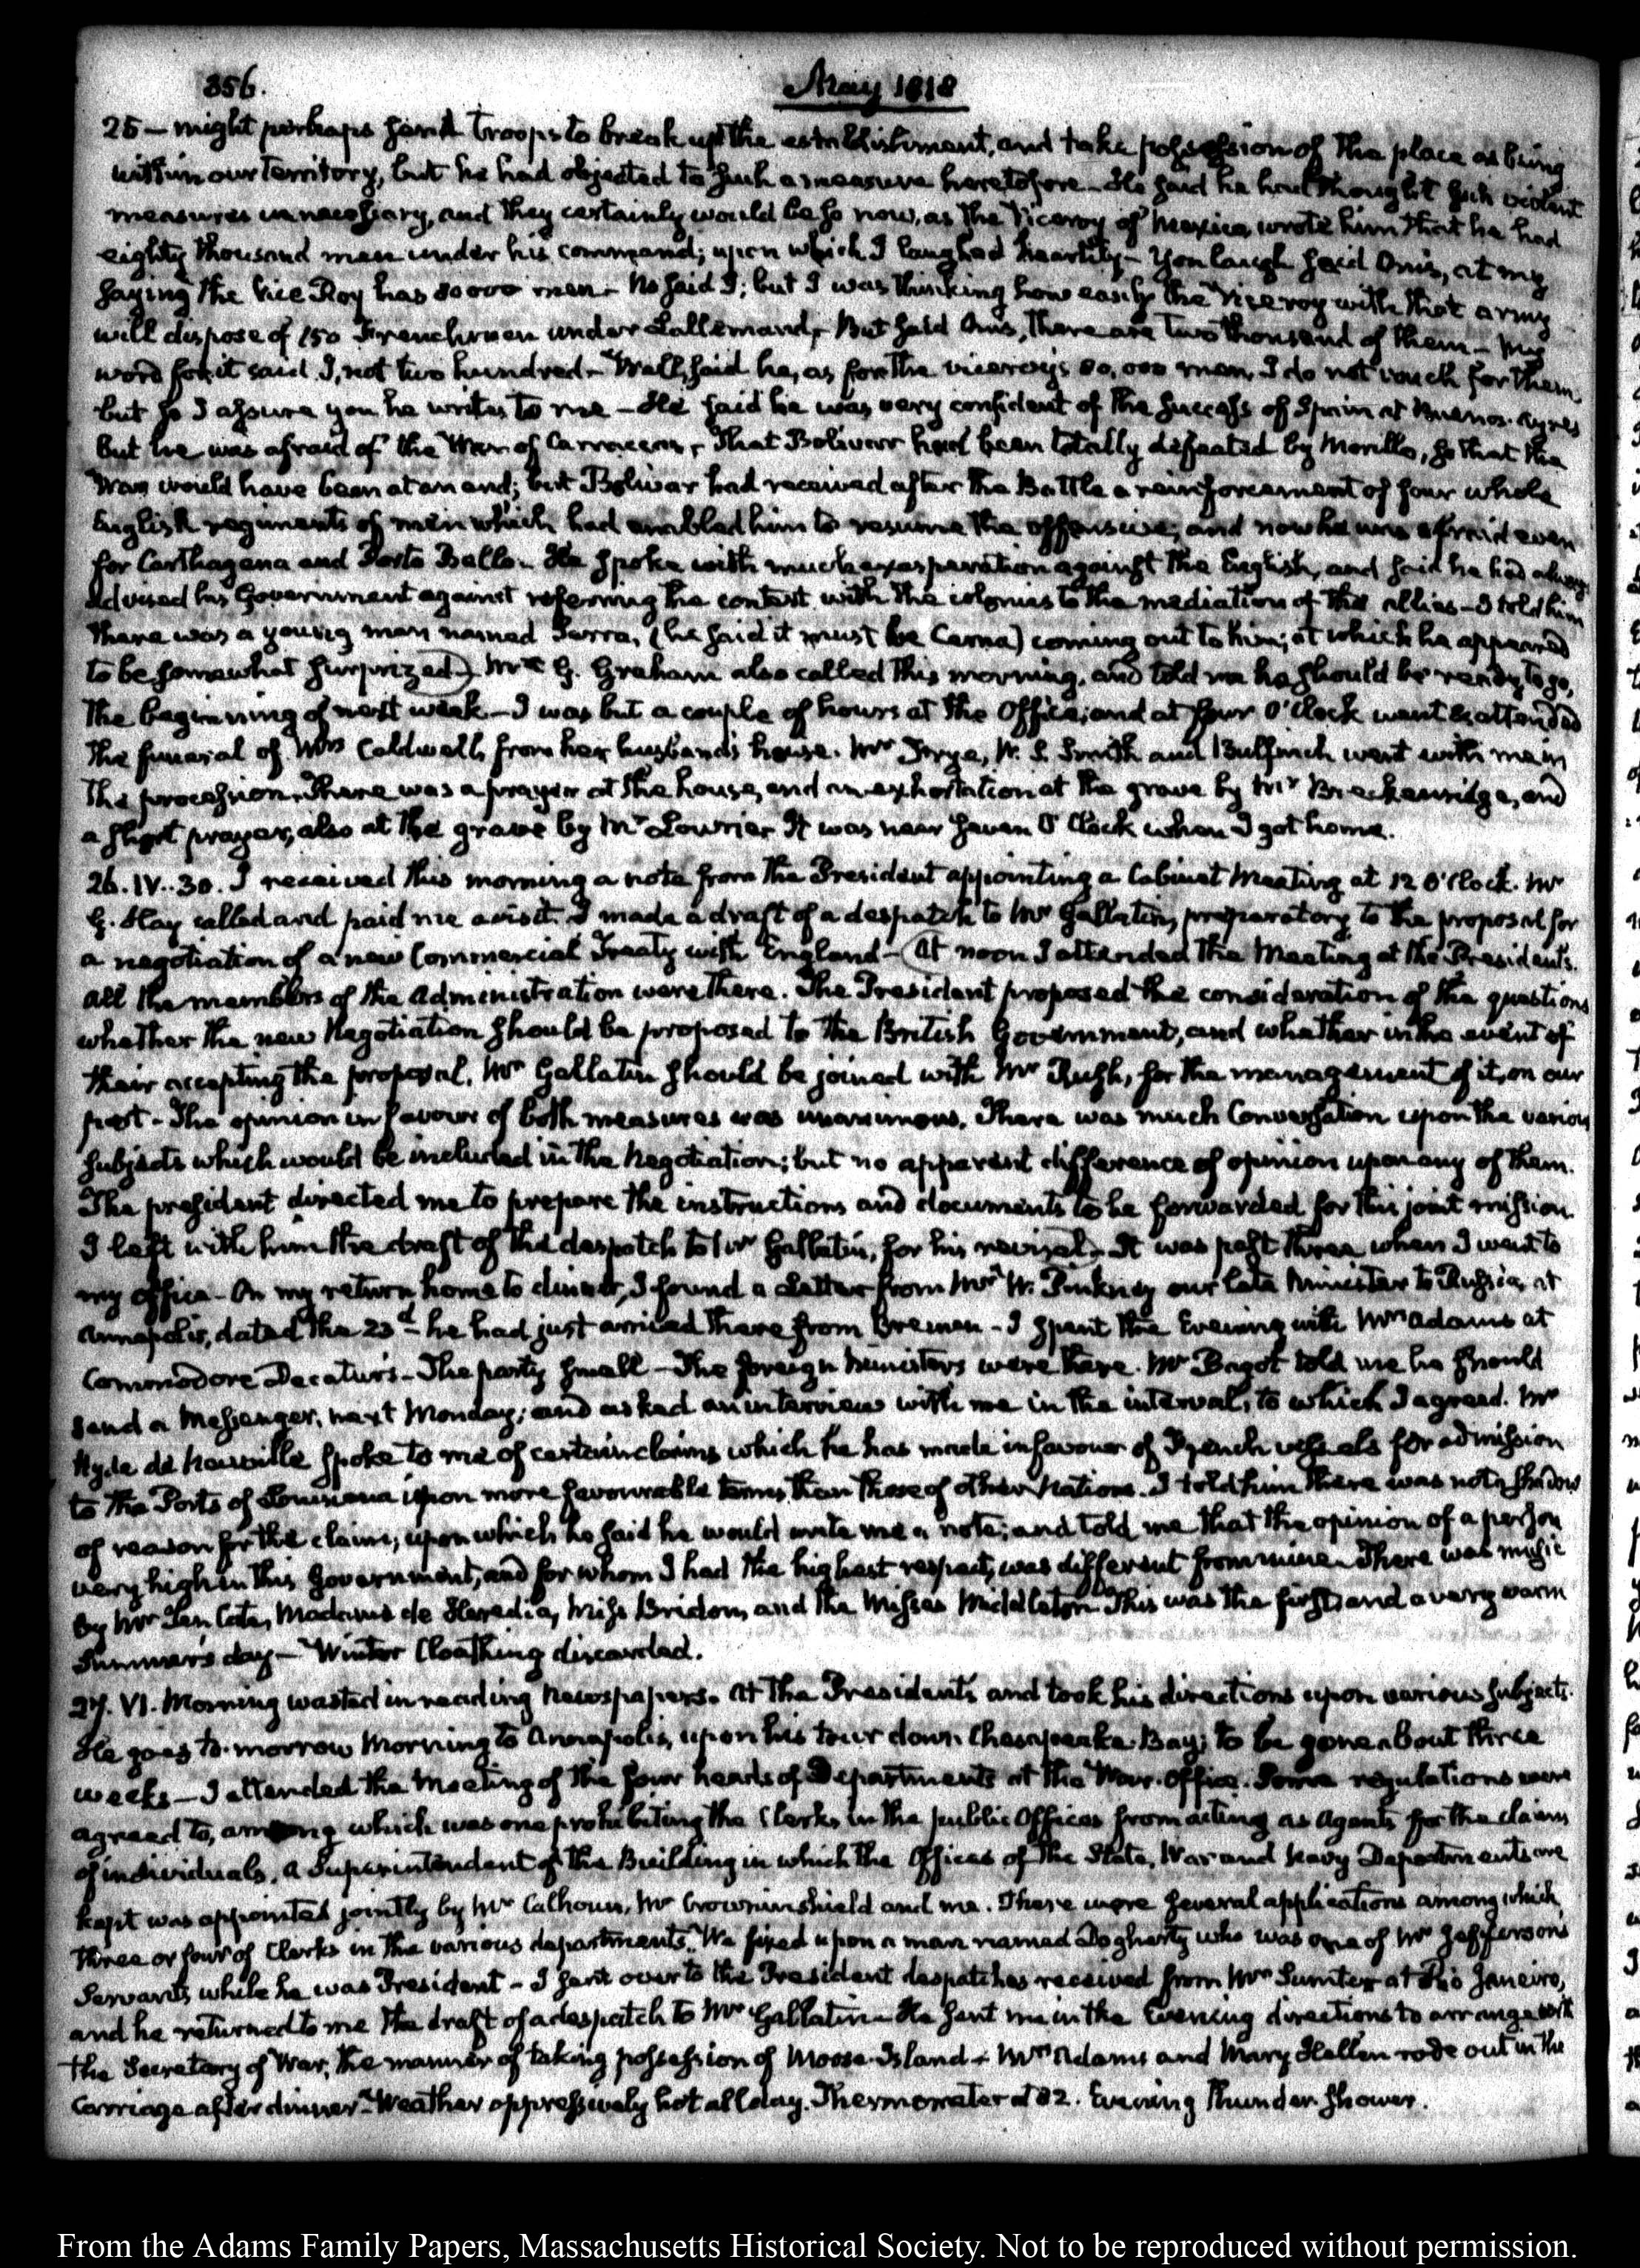 356.
May 1818
25 — might perhaps send troops to break up the establishment, and take possession of the place as being
within our Territory, but he had objected to such a measure heretofore — He said he had thought such violent
measures unnecessary, and they certainly would be so now, as the Viceroy of Mexico, wrote him that he had
eighty thousand men under his command; upon which I laughed heartily — You laugh said Onis, at my
saying the Vice Roy has 80000 men — No said I; but I was thinking how easily the Viceroy with that army
will dispose of 150 Frenchmen under Lallemand, — But said Onis, there are two thousand of them — My
word for it said I, not two hundred — Well, said he, as for the viceroy's 80,000 men, I do not vouch for them,
but so I assure you he writes to me — He said he was very confident of the success of Spain at Buenos-Ayres
but he was afraid of the War of Carraccas, — That Bolivar had been totally defeated by Morillo, so that the
War would have been at an end; but Bolivar had received after the Battle a reinforcement of four whole
English regiments of men which had enabled him to resume the offensive; and now he was afraid even
for Carthagena and Porto Bello — He spoke with much exasperation against the English, and said he had always
advised his Government against referring the contest with the colonies to the mediation of the allies — I told him
there was a young man named Serra, (he said it must be Cerna) coming out to him; at which he appeared
to be somewhat surprized — Mr. G. Graham also called this morning, and told me he should be ready to go,
the beginning of next week — I was but a couple of hours at the Office; and at four O'Clock went & attended
the funeral of Mrs Caldwell, from her husband's house. Mr Frye, W. S. Smith and Bulfinch went with me in
the procession. There was a prayer at the house, and an exhortation at the grave by Mr Breckenridge, and
a short prayer, also at the grave by Mr Lowrie. It was near seven O'Clock when I got home.
26. IV..30. I received this morning a note from the President appointing a Cabinet Meeting at 12 O'Clock. Mr
G. Hay called and paid me a visit. I made a draft of a despatch to Mr Gallatin, preparatory to the proposal for
a negotiation of a new Commercial Treaty with England — At noon I attended the Meeting at the President's.
All the members of the Administration were there. The President proposed the consideration of the questions
whether the new Negotiation should be proposed to the British Government, and whether in the event of
their accepting the proposal, Mr Gallatin should be joined with Mr Rush, for the management of it, on our
part — The opinion in favour of both measures was unanimous. There was much Conversation upon the various
subjects which would be included in the Negotiation; but no apparent difference of opinion upon any of them.
The president directed me to prepare the instructions and documents to be forwarded for this joint mission.
I left with him the draft of the despatch to Mr Gallatin, for his revisal — It was past three when I went to
my office — On my return home to dinner, I found a Letter from Mr W. Pinkney our late Minister to Russia, at
Annapolis, dated the 23d — he had just arrived there from Bremen — I spent the Evening with Mrs Adams at
Commodore Decatur's — The party small — The foreign Ministers were there. Mr Bagot told me he should
send a Messenger, next Monday; and asked an interview with me in the interval, to which I agreed. Mr
Hyde de Neuville spoke to me of certain claims which he has made in favour of French vessels for admission
to the Ports of Louisiana upon more favourable terms than those of other Nations. I told him there was not a shadow
of reason for the claim; upon which he said he would write me a note; and told me that the opinion of a person
very high in this Government, and for whom I had the highest respect, was different from mine — There was music
by Mr Ten Cate, Madame de Heredia, Miss Bridon, and the Misses Middleton — This was the first, and a very warm
Summer's day — Winter Cloathing discarded.
27. VI. Morning wasted in reading Newspapers. At the President's and took his directions upon various subjects.
He goes to-morrow Morning to Annapolis, upon his tour down Chesapeake-Bay; to be gone about three
weeks — I attended the Meeting of the four heads of Departments at the War-Office. Some regulations were
agreed to, among which was one prohibiting the Clerks in the public Offices from acting as Agents for the claims
of individuals. A Superintendent of the Building in which the Offices of the State, War and Navy Departments are
kept was appointed jointly by Mr Calhoun, Mr Crowninshield and me. There were several applications among which,
three or four of Clerks in the various departments. We fixed upon a man named Dogherty who was one of Mr Jefferson's
Servants while he was President — I sent over to the President despatches received from Mr Sumter at Rio Janeiro,
and he returned to me the draft of a despatch to Mr Gallatin — He sent me in the Evening directions to arrange with
the Secretary of War, the manner of taking possession of Moose-Island — Mrs Adams and Mary Hellen rode out in the
Carriage after dinner — Weather oppressively hot all day. Thermometer at 82. Evening Thunder-shower.
From the Adams Family Papers, Massachusetts Historical Society. Not to be reproduced without permission.